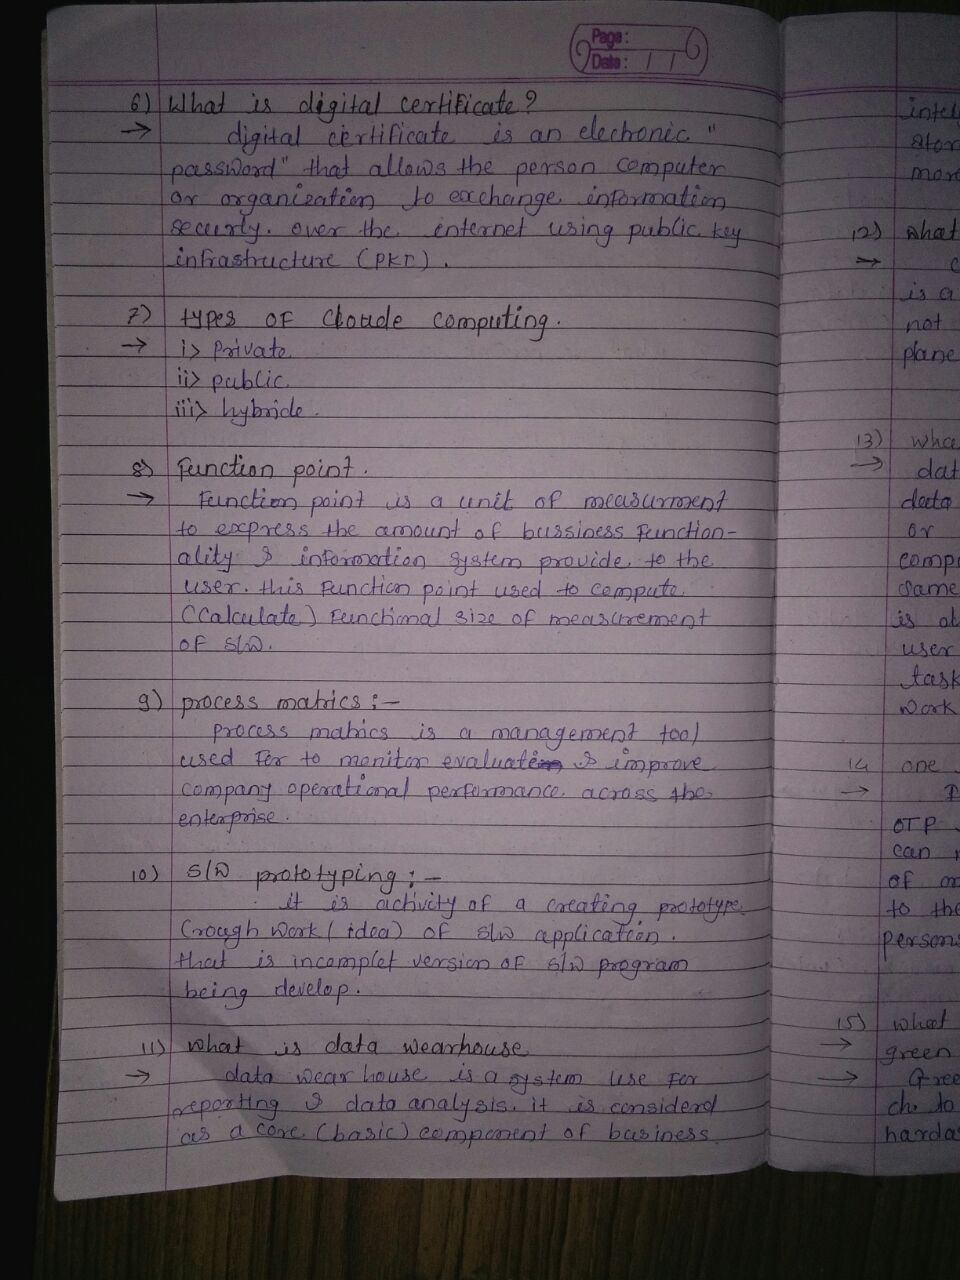 Page:
Date: / /
6) What is digital certificate?
→ digital certificate is an elechonic "
password" that allows the person computer
or organization to exchange information
securly. over the internet using public key
infrastructure (PKI).
7) types of Cloude computing.
→ i> Private
ii> public
iii> hybride.
8) Function point.
→ Function point is a unit of measurment
to express the amount of bussiness Function-
ality & information system provide to the
user. this Function point used to compute
(Calculate) Functional size of measurement
of S/W.
9) process matrics :-
process matrics is a management tool
used For to monitor evaluate & improve
company operational performance across the
enterprise.
10) S/W prototyping :-
it is activity of a creating prototype
(rough work / idea) of S/W application.
that is incomplet version of S/W program
being develop.
11) What is data wearhouse
→ data wearhouse is a system use For
reporting & data analysis. it is considerd
as a core (basic) component of business
more
12) what
→
is a
not
plane
13)
→ dat
data
or
comp
same
is
user
task
work
14 one
→
OTP
can
of
to the
persons
15) what
→ green
→ Gree
ch to